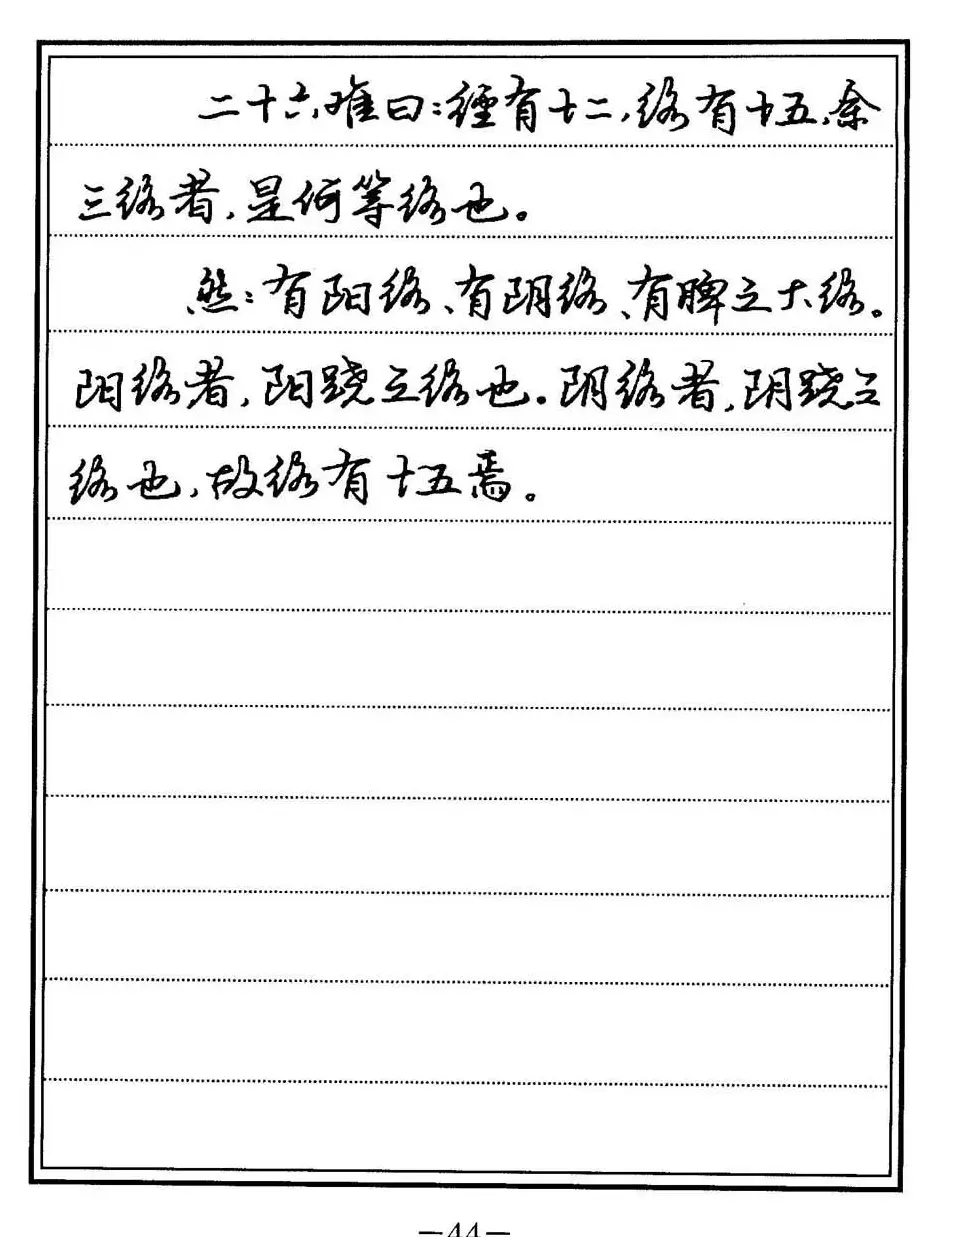 二十六难曰:經有十二,络有十五,余
三络者,是何等络也。
然:有阳络、有阴络、有脾之大络。
阳络者,阳跷之络也。阴络者,阴跷之
络也,故络有十五焉。
—44—